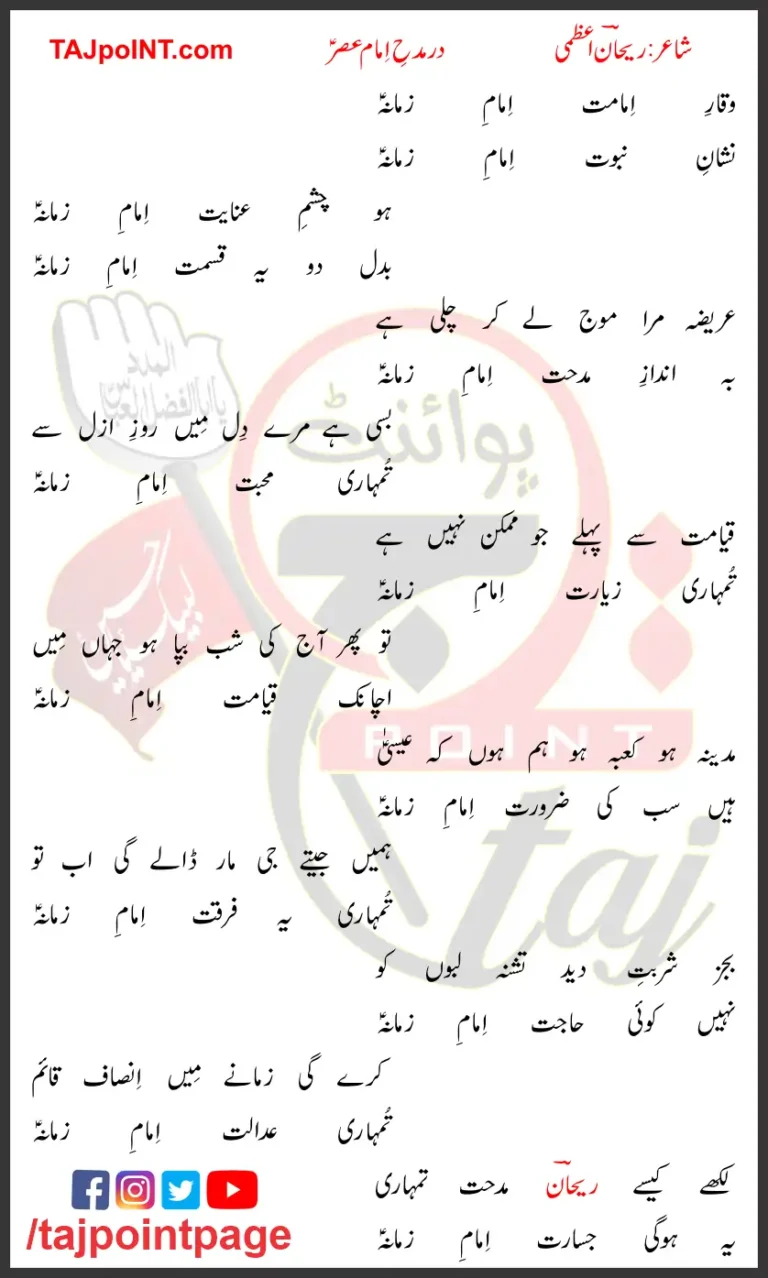 شاعر: ریحانؔ اعظمی
در مدحِ اِمام عصرؑ
TAJpoINT.com
وقارِ اِمامت اِمامِ زمانہؑ
نشانِ نبوت اِمامِ زمانہؑ
ہو چشمِ عنایت اِمامِ زمانہؑ
بدل دو یہ قسمت اِمامِ زمانہؑ
عریضہ مرا موج لے کر چلی ہے
بہ اندازِ مدحت اِمامِ زمانہؑ
بسی ہے مرے دِل مِیں روزِ ازل سے
تُمہاری محبت اِمامِ زمانہؑ
قیامت سے پہلے جو ممکن نہیں ہے
تُمہاری زیارت اِمامِ زمانہؑ
تو پھر آج کی شب بپا ہو جہاں مِیں
اچانک قیامت اِمامِ زمانہؑ
مدینہ ہو کعبہ ہو ہم ہوں کہ عیسیٰؑ
ہیں سب کی ضرورت اِمامِ زمانہؑ
ہمیں جیتے جی مار ڈالے گی اب تو
تُمہاری یہ فرقت اِمامِ زمانہؑ
بجز شربتِ دید تشنہ لبوں کو
نہیں کوئی حاجت اِمامِ زمانہؑ
کرے گی زمانے مِیں اِنصاف قائم
تُمہاری عدالت اِمامِ زمانہؑ
لکھے کیسے ریحانؔ مدحت تمہاری
یہ ہوگی جسارت اِمامِ زمانہؑ
/tajpointpage
المدد
یا ابالفضل العباس
لبیک یا حسین
پوائنٹ
تاج
POINT
taj